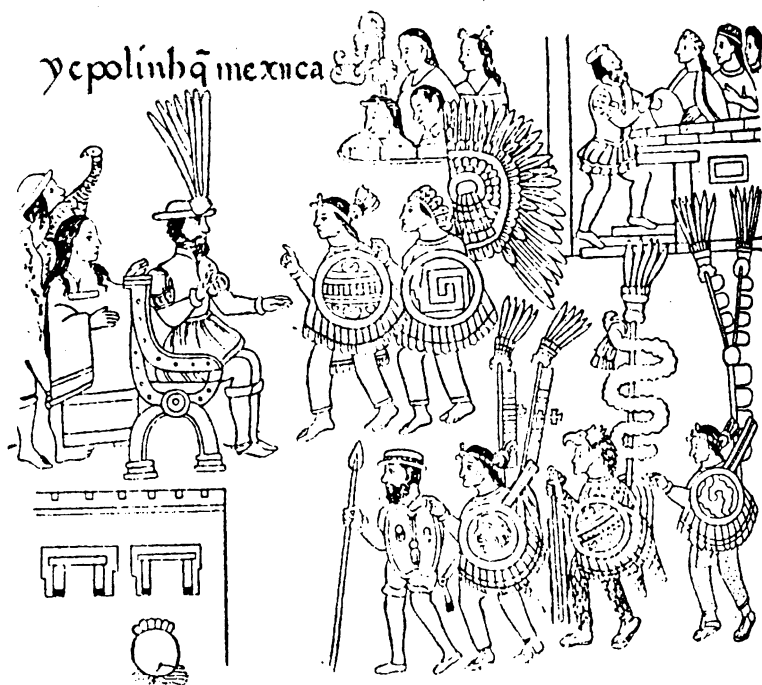 ycpoliuhq̃ mexiica